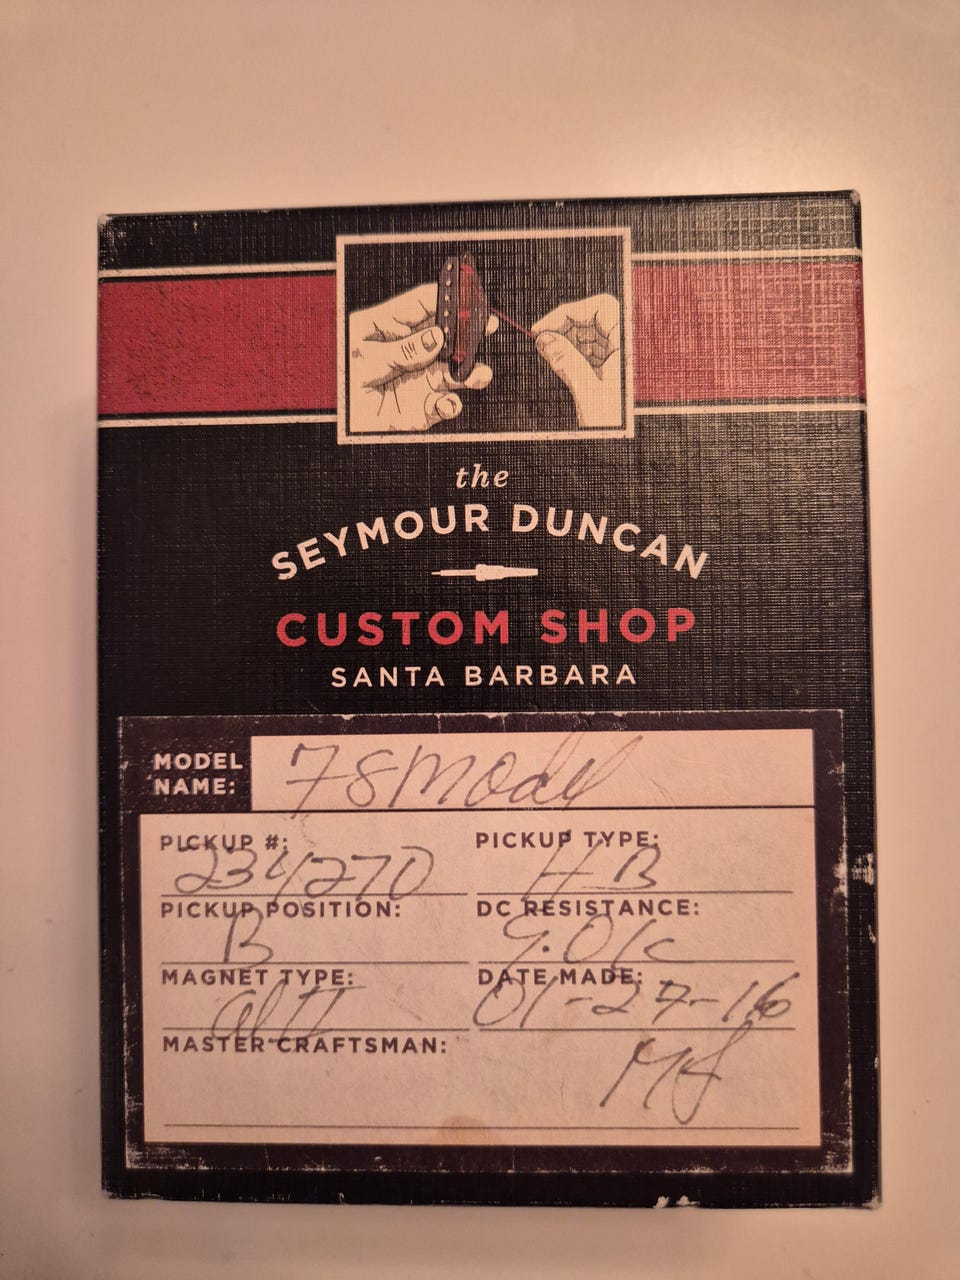 the
SEYMOUR DUNCAN
CUSTOM SHOP
SANTA BARBARA
MODEL NAME: 78 Model
PICKUP #: 234270
PICKUP TYPE: HB
PICKUP POSITION: B
DC RESISTANCE: 9.01K
MAGNET TYPE: Al II
DATE MADE: 01-27-16
MASTER CRAFTSMAN: MJ